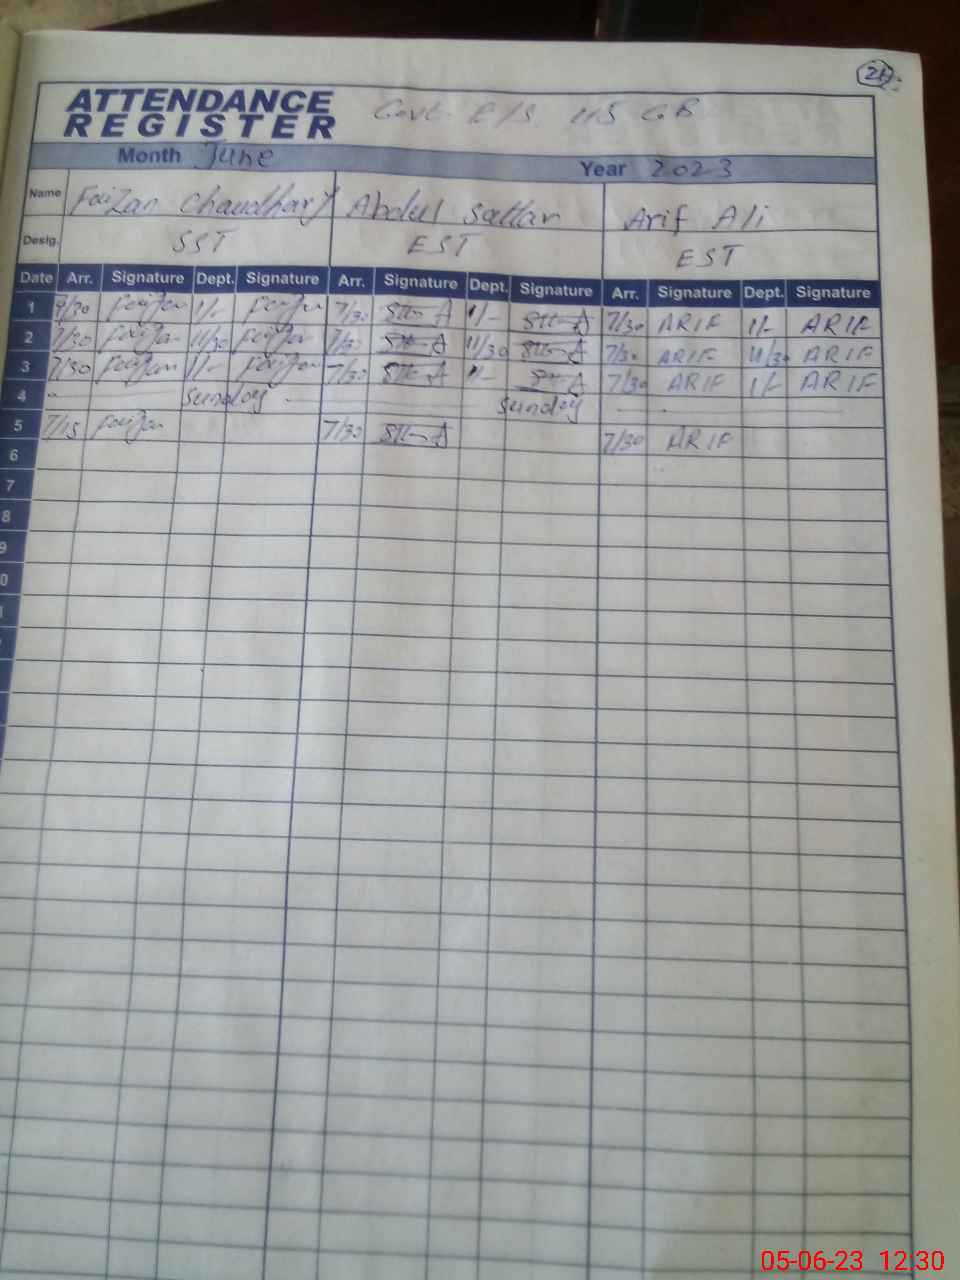 21
ATTENDANCE Govt. E/S 45 GB
REGISTER
Month June Year 2023
Name Faizan Chaudhary Abdul Sattar Arif Ali
Desig. SST EST EST
Date Arr. Signature Dept. Signature Arr. Signature Dept. Signature Arr. Signature Dept. Signature
1 7/30 Faizan 1/- Faizan 7/30 1/- 7/30 ARIF 1/- ARIF
2 7/30 Faizan 11/30 Faizan 7/30 11/30 7/30 ARIF 11/30 ARIF
3 7/30 Faizan 1/- Faizan 7/30 1/- 7/30 ARIF 1/- ARIF
4 Sunday Sunday
5 7/15 Faizan 7/30 7/30 ARIF
6
7
8
9
0
1
05-06-23 12:30